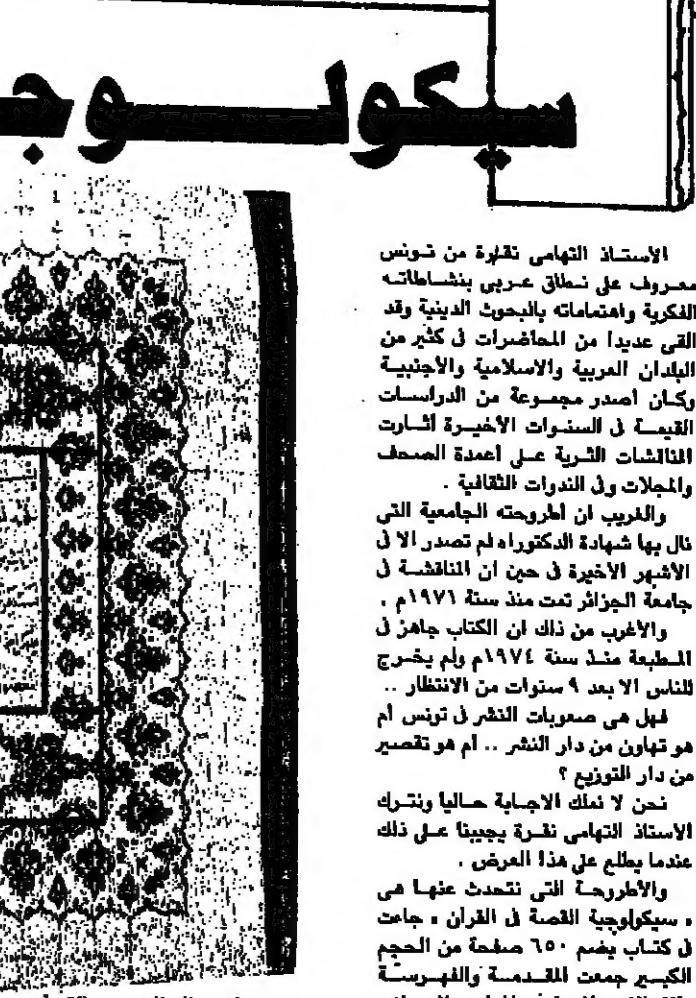 سيكولـوجـ
الأستاذ التهامى نقرة من تونس
معروف على نطاق عربى بنشاطاته
الفكرية واهتماماته بالبحوث الدينية وقد
القى عديدا من المحاضرات فى كثير من
البلدان العربية والاسلامية والأجنبية
وكان أصدر مجموعة من الدراسات
القيمة فى السنوات الأخيرة أثارت
المناقشات الثرية على أعمدة الصحف
والمجلات وفى الندوات الثقافية .
والغريب ان أطروحته الجامعية التى
نال بها شهادة الدكتوراه لم تصدر الا فى
الأشهر الأخيرة فى حين ان المناقشة فى
جامعة الجزائر تمت منذ سنة ١٩٧١م .
والأغرب من ذلك ان الكتاب جاهز فى
المطبعة منذ سنة ١٩٧٤م ولم يخرج
للناس الا بعد ٩ سنوات من الانتظار ..
فهل هى صعوبات النشر فى تونس أم
هو تهاون من دار النشر .. أم هو تقصير
من دار التوزيع ؟
نحن لا نملك الاجابة حاليا ونترك
الأستاذ التهامى نقرة يجيبنا على ذلك
عندما يطلع على هذا العرض .
والأطروحة التى نتحدث عنها هى
« سيكولوجية القصة فى القرآن » جاءت
فى كتاب يضم ٦٥٠ صفحة من الحجم
الكبير جمعت المقدمة والفهرسة